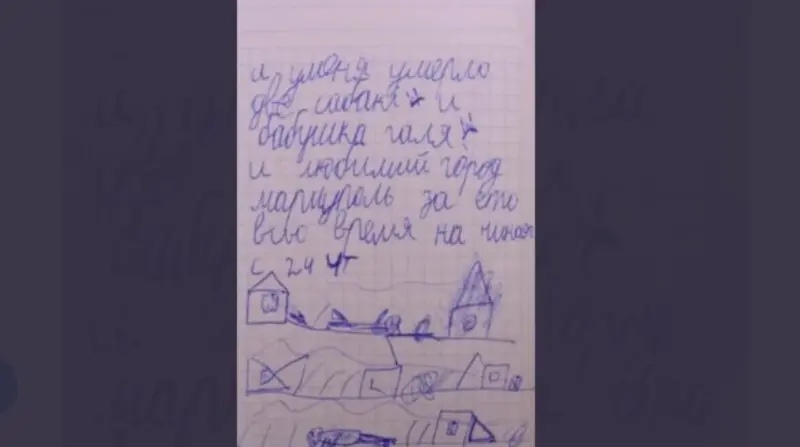 и уменя умерло
две сабаки и
бабушка галя
и любимий город
мариуполь за ето
всю время на чиная
с 24 чт